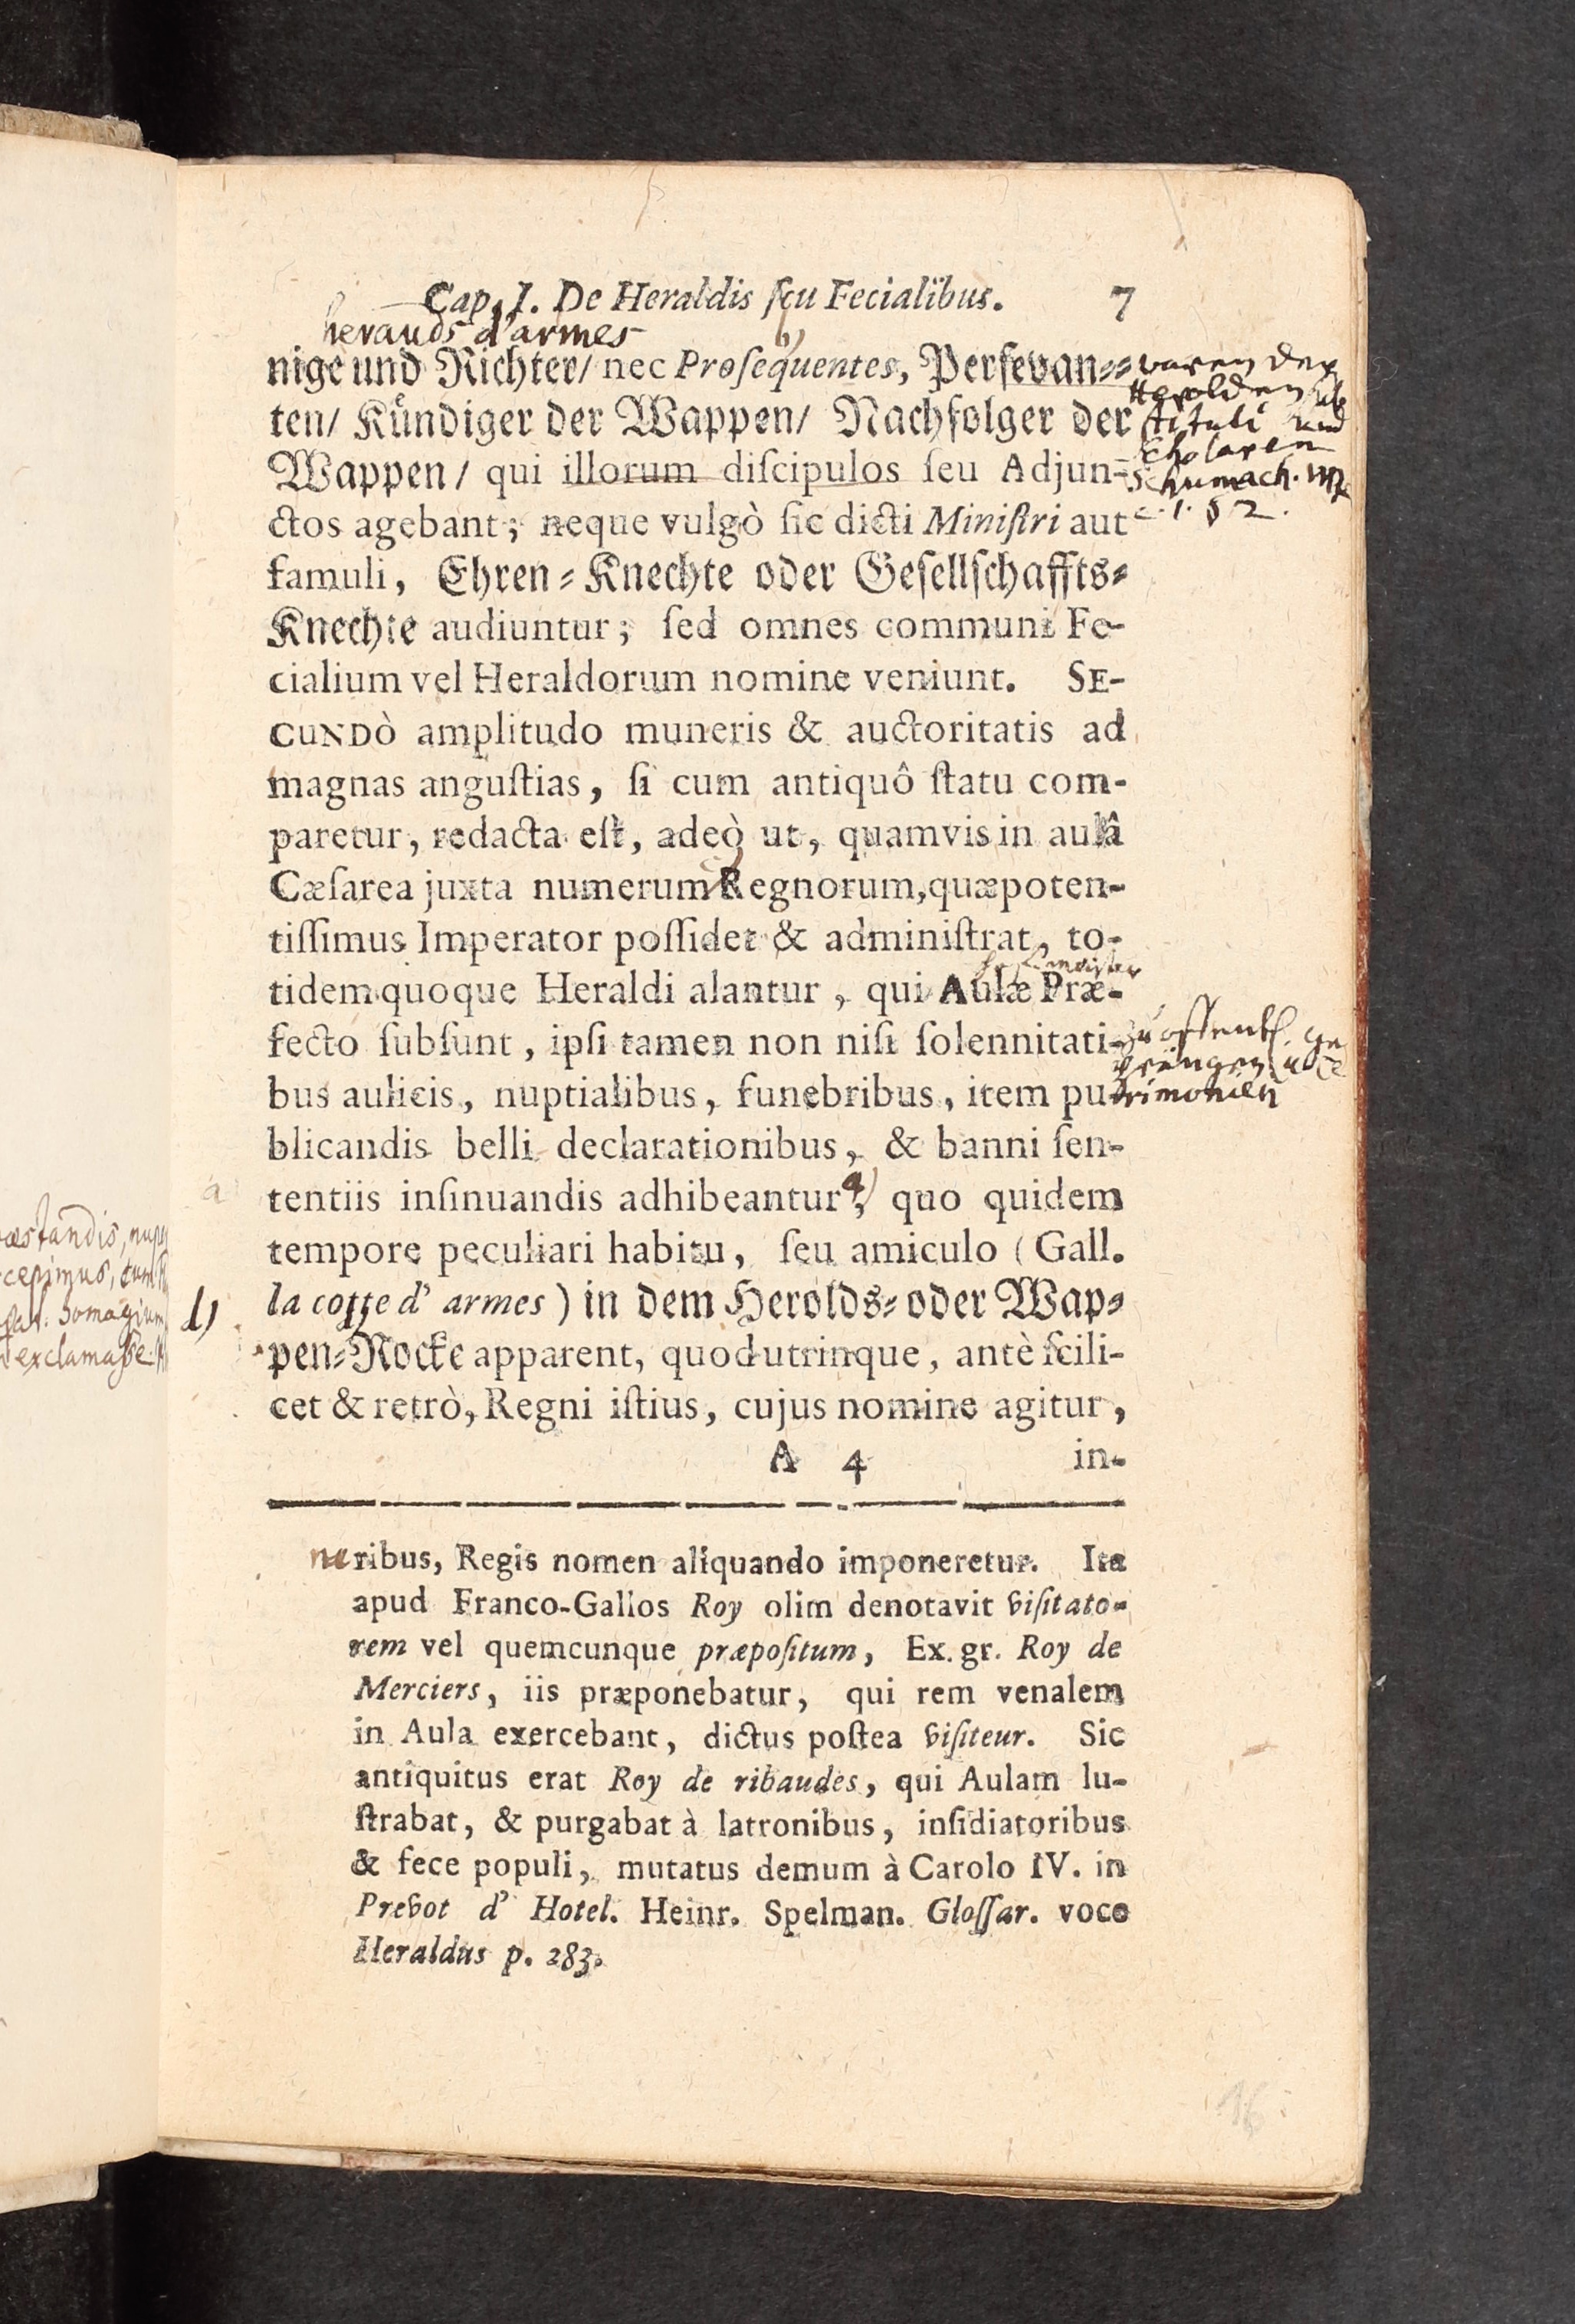 Cap. I. De Heraldis ſeu Fecialibus. 7
herauds d'armes
nige und Richter/ nec Proſequentes, Perſevan⸗
ten/ Kündiger der Wappen/ Nachfolger der
Wappen/ qui illorum diſcipulos ſeu Adjun-
ctos agebant; neque vulgò ſic dicti Miniſtri aut
famuli, Ehren⸗Knechte oder Geſellſchaffts⸗
Knechte audiuntur; ſed omnes communi Fe-
cialium vel Heraldorum nomine veniunt. SE-
CUNDÒ amplitudo muneris & auctoritatis ad
magnas anguſtias, ſi cum antiquô ſtatu com-
paretur, redacta eſt, adeò ut, quamvis in aulâ
Cæſarea juxta numerum Regnorum, quæ poten-
tiſſimus Imperator poſſidet & adminiſtrat, to-
tidem quoque Heraldi alantur, qui Aulæ Præ-
fecto ſubſunt, ipſi tamen non niſi ſolennitati-
bus aulicis, nuptialibus, funebribus, item pu-
blicandis belli declarationibus, & banni ſen-
tentiis inſinuandis adhibeantur, quo quidem
tempore peculiari habitu, ſeu amiculo (Gall.
la cotte d' armes) in dem Herolds⸗oder Wap⸗
pen⸗Rocke apparent, quod utrinque, antè ſcili-
cet & retrò, Regni iſtius, cujus nomine agitur,
A 4 in-
waren der
Herolden
tituli und
Scholaren
Schumach.
c. 1. § 2.
a
æstandis,
cepimus, cum
homagium
exclamasse
neribus, Regis nomen aliquando imponeretur. Ita
apud Franco-Gallos Roy olim denotavit viſitato-
rem vel quemcunque præpoſitum, Ex. gr. Roy de
Merciers, iis præponebatur, qui rem venalem
in Aula exercebant, dictus poſtea viſiteur. Sic
antiquitus erat Roy de ribaudes, qui Aulam lu-
ſtrabat, & purgabat à latronibus, inſidiatoribus
& fece populi, mutatus demum à Carolo IV. in
Prevot d' Hotel. Heinr. Spelman. Gloſſar. voce
Heraldus p. 283.
16